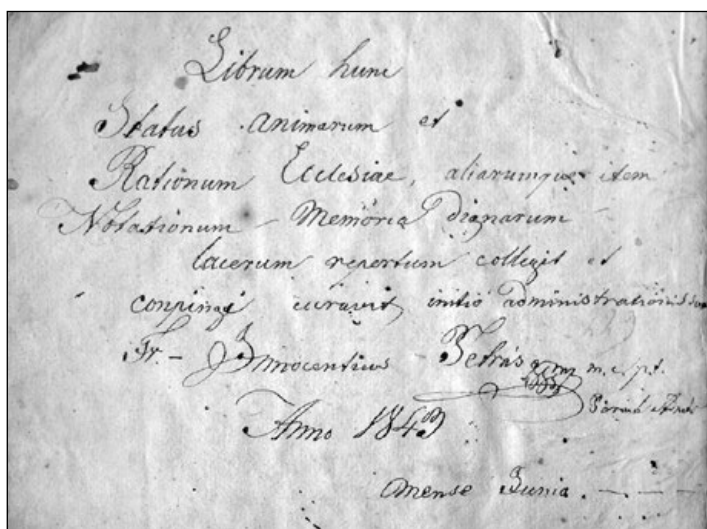 Librum hunc
Status animarum et
Rationum Ecclesiae, aliarumque item
Notationum Memoria dignarum
lacerum repertum collegit et
conpingi curavit, initio administrationis suae
Fr. Innocentius Petrás
Anno 1843
mense Junio.